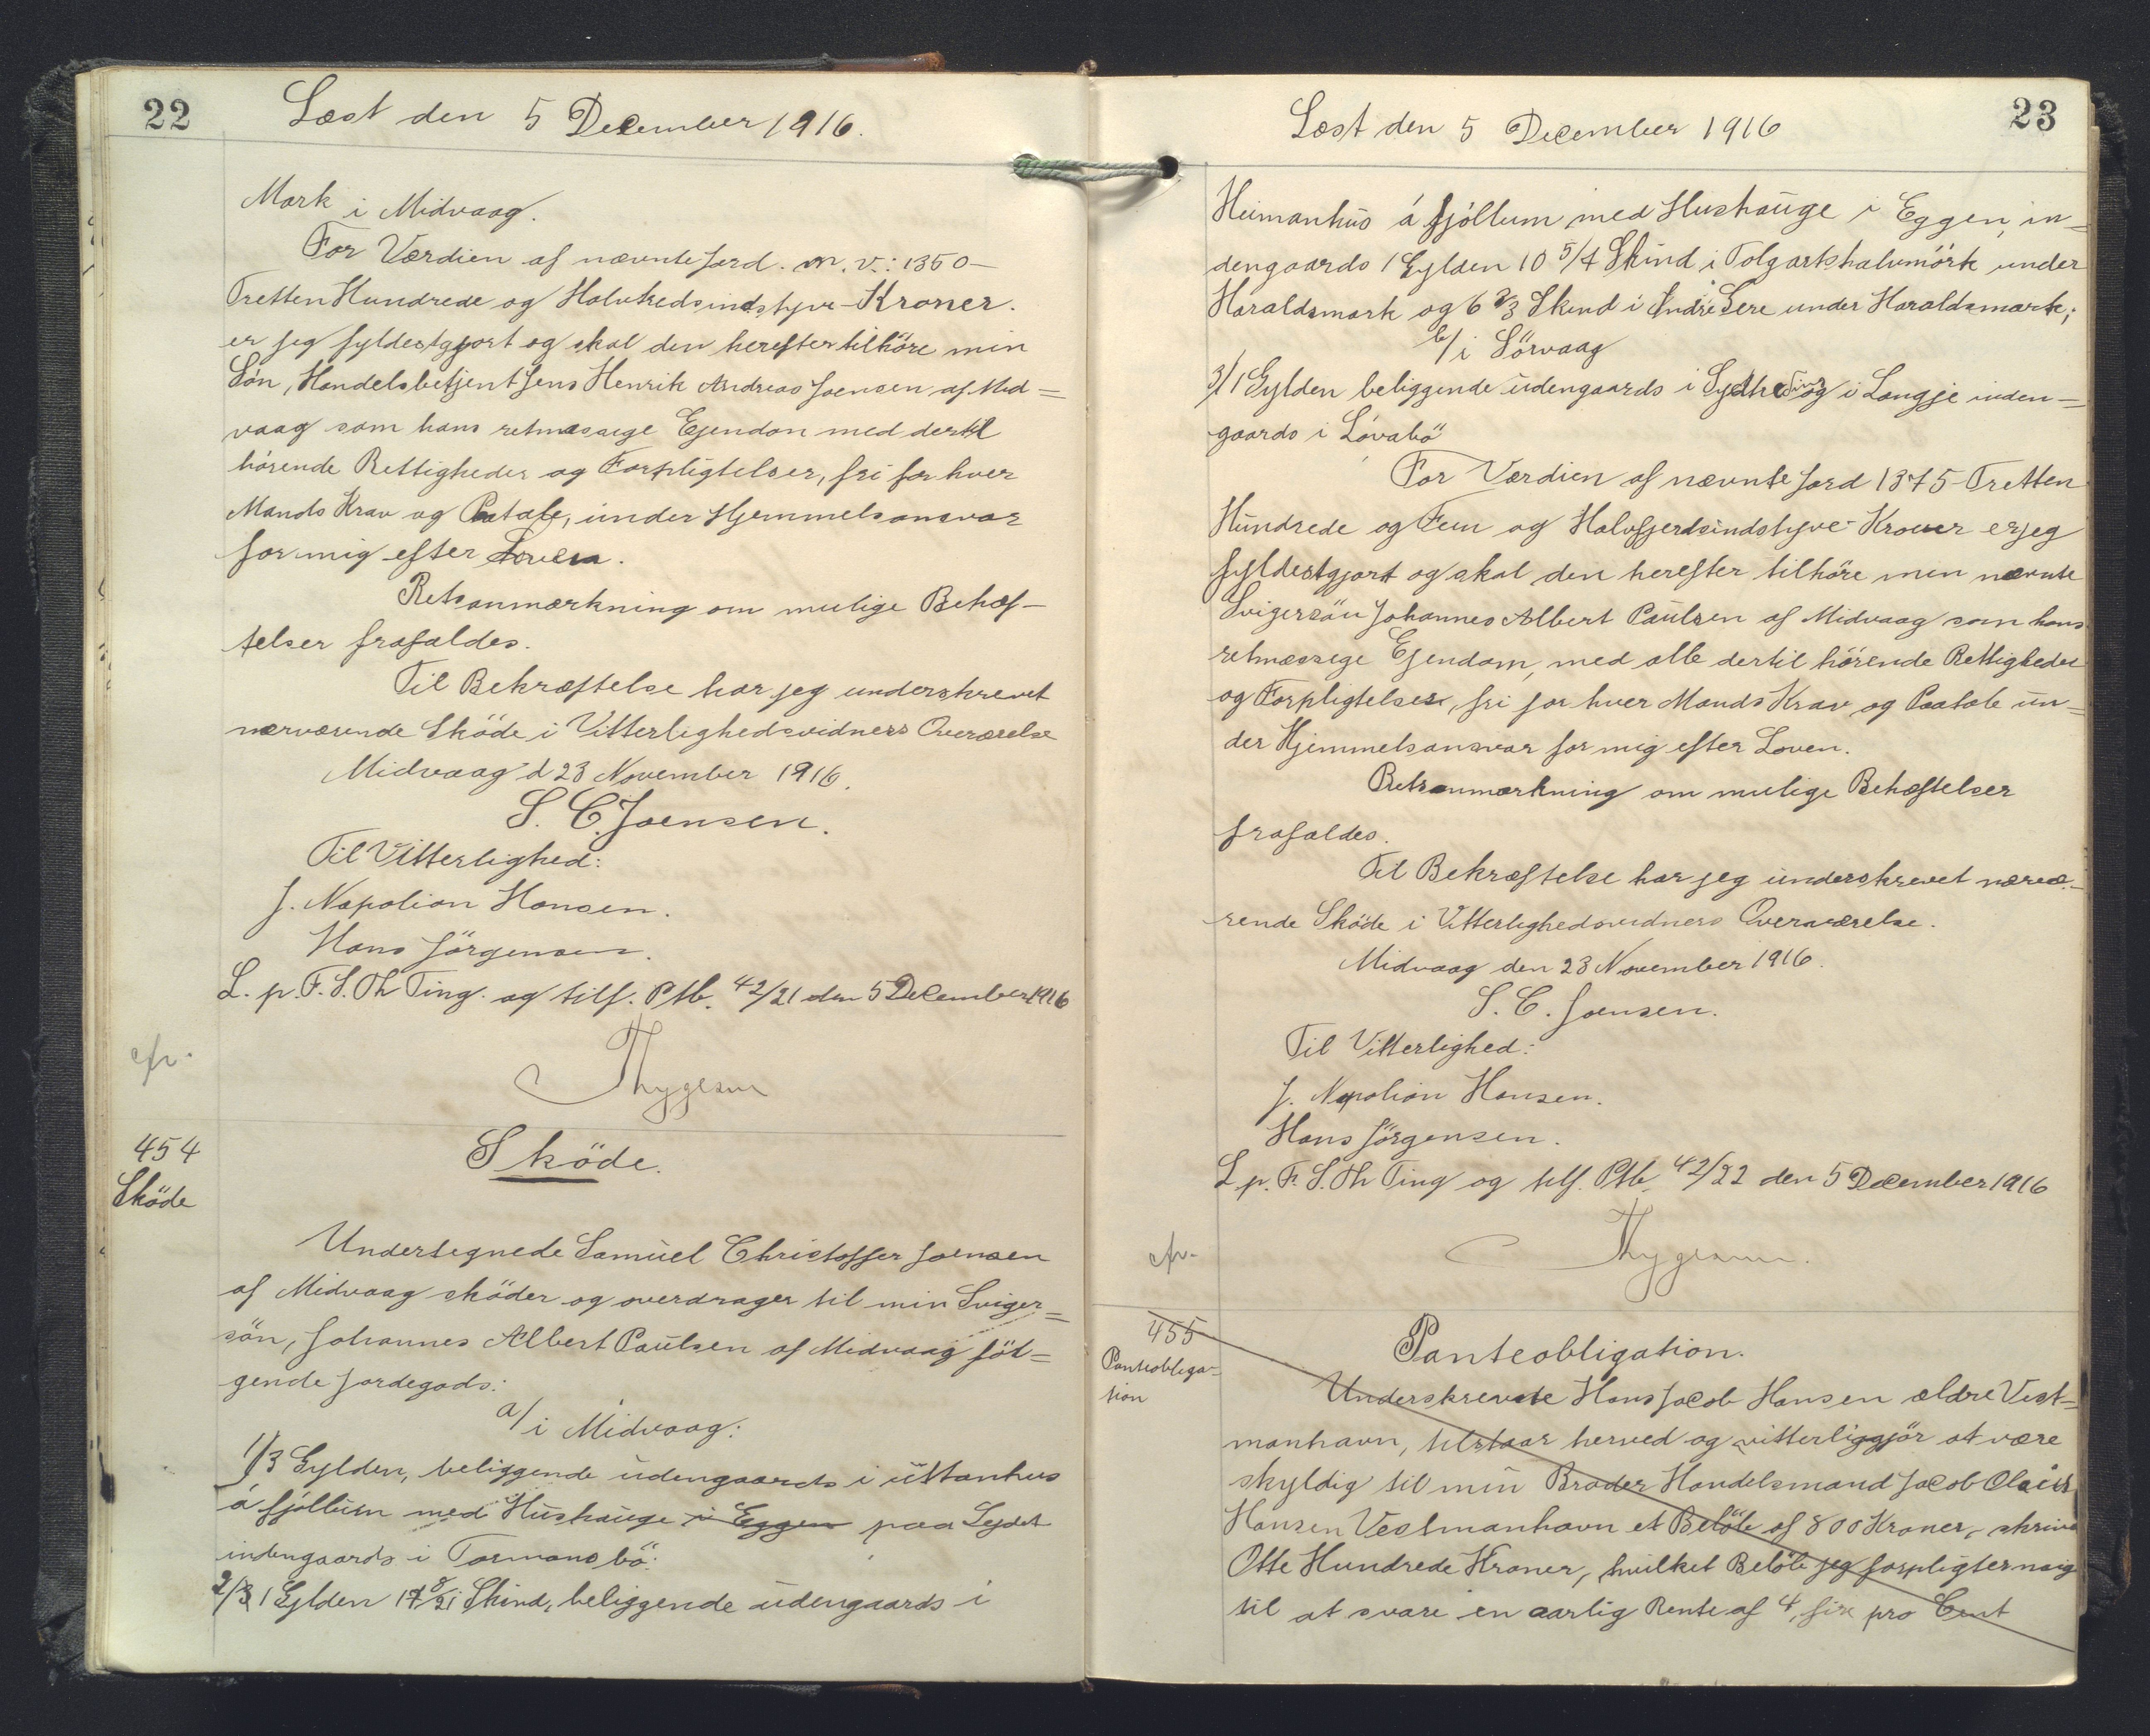 22
Læst den 5 December 1916.
Mark i Midvaag.
For Værdien af nævnte Jord. m. v.: 1350 —
Tretten Hundrede og Halvtredsindstyve - Kroner.
er jeg fyldestgjort og skal den herefter tilhöre min
Sön, Handelsbetjent Jens Henrik Andreas Joensen af Mid=
vaag som hans retmæssige Ejendon med dertil
hörende Rettigheder og Forpligtelser, fri for hver
Mands Krav og Paatale, under Hjemmelsansvar
for mig efter Loven.
Retsanmærkning om mulige Behæf-
telser frafaldes.
Til Bekræftelse har jeg underskrevet
nærværende Sköde i Vitterlighedsvidners Overværelse
Midvaag d 23 November 1916.
S. C. Joensen.
Til Vitterlighed:
J. Napolion Hansen.
Hans Jörgensen.
L. p. F. S. Th Ting. og tilf. Ptb. 42/21 den 5 December 1916
cfr.
Thygesen
454
Sköde
Sköde.
Undertegnede Samuel Christoffer Joensen
af Midvaag sköder og overdrager til min Sviger=
sön, Johannes Albert Paulsen af Midvaag föl=
gende Jordegods:
a/ i Midvaag:
1/ 3 Gylden, beliggende udengaards i úttanhus
á fjøllum med Hushauge i Eggen paa Sydet
indengaards i Tormans bö:
2/ 1 Gylden 17 8/21 Skind, beliggende udengaards i
23
Læst den 5 December 1916
Heimanhus á fjöllum med Hushauge i Eggen, in=
dengaards 1 Gylden 10 5/4 Skind i Tolgartshalvmörk under
Haraldsmark og 6 2/3 Skind i Indre Gere under Haraldsmark;
b/ i Sörvaag
3/ 1 Gylden beliggende udengaards i og i Langje inden=
gaards i Lövabö
For Værdien af nævnte Jord 1375 - Tretten
Hundrede og Fem og Halvfjerdsindstyve - Kroner er jeg
fyldestgjort og skal den herefter tilhöre min nævnte
Svigersön Johannes Albert Paulsen af Midvaag som hans
retmæssige Ejendom, med alle dertil hörende Rettigheder
og Forpligtelser, fri for hver Mands Krav og Paatale un=
der Hjemmelsansvar for mig efter Loven.
Retsanmærkning om mulige Behæftelser
frafaldes.
Til Bekræftelse har jeg underskrevet nærvæ-
rende Sköde i Vitterlighedsvidners Overværelse.
Midvaag den 23 November 1916.
S. C. Joensen.
Til Vitterlighed:
J. Napolion Hansen.
Hans Jörgensen.
L p. F. S. Th Ting og tilf. Ptb. 42/22 den 5 December 1916
cfr.
Thygesen.
455
Panteobliga-
tion
Panteobligation.
Underskrevne Hans Jacob Hansen ældre Vest=
manhavn, tilstaar herved og vitterliggjör at være
skyldig til min Broder Handelsmand Jacob Olaus
Hansen Vestmanhavn et Belöb af 800 Kroner, skriver
Otte Hundrede Kroner, hvilket Belöb jeg forpligter mig
til at svare en aarlig Rente af 4, fire pro Cent